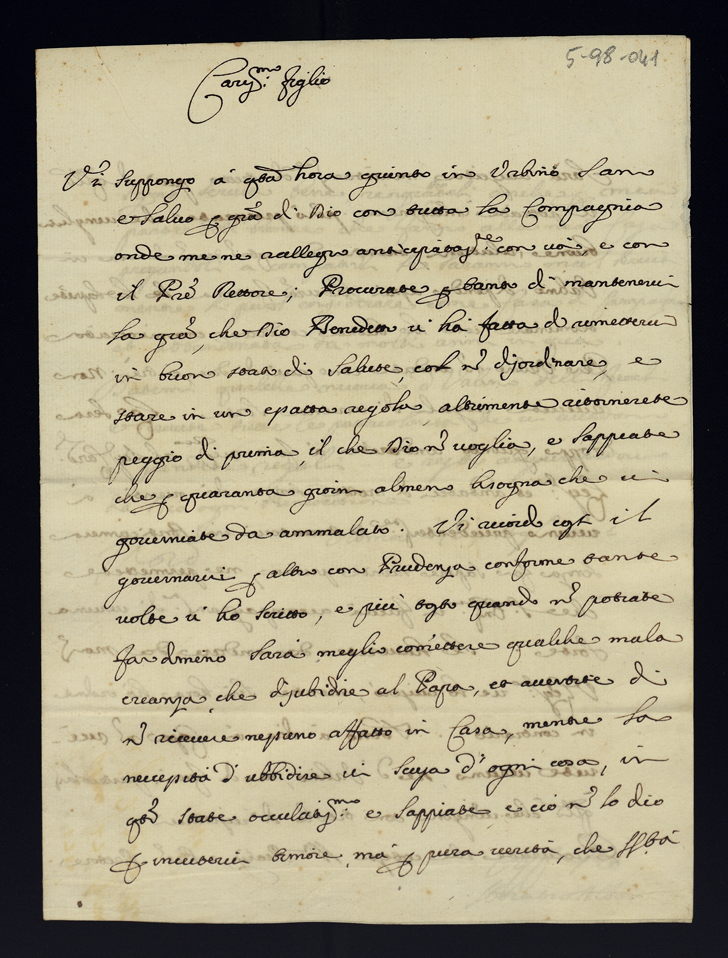 5-98-041
Cariss.mo figlio
Vi suppongo à q.ta hora giunto in Urbino sano
e salvo p gra di Dio con tutta la Compagnia
onde me ne rallegro anticipatam.te con voi e con
il Pre Rettore; Procurate p tanto di mantenervi
la gra, che Dio Benedetto vi hà fatta di rimettervi
in buon stato di salute, col nō disordinare, e
stare in un esatta regola, altrimente ritornerete
peggio di prima, il che Dio nō voglia, e sappiate
che p quaranta giorni almeno bisogna che vi
governiate da ammalato. Vi ricordo il
governarvi p altro con Prudenza conforme tante
volte vi hò scritto, e più tosto quando nō potrete
far dimeno sarà meglio comettere qualche mala
creanza, che disubidire al Papa, et avertite di
nō ricevere nessuno affatto in Casa, mentre la
necessità d'ubbidire vi scusa d'ogni cosa, in
q.to state occulatiss.mo e sappiate, e ciò nō lo dico
p incutervi timore, mà p pura verità, che